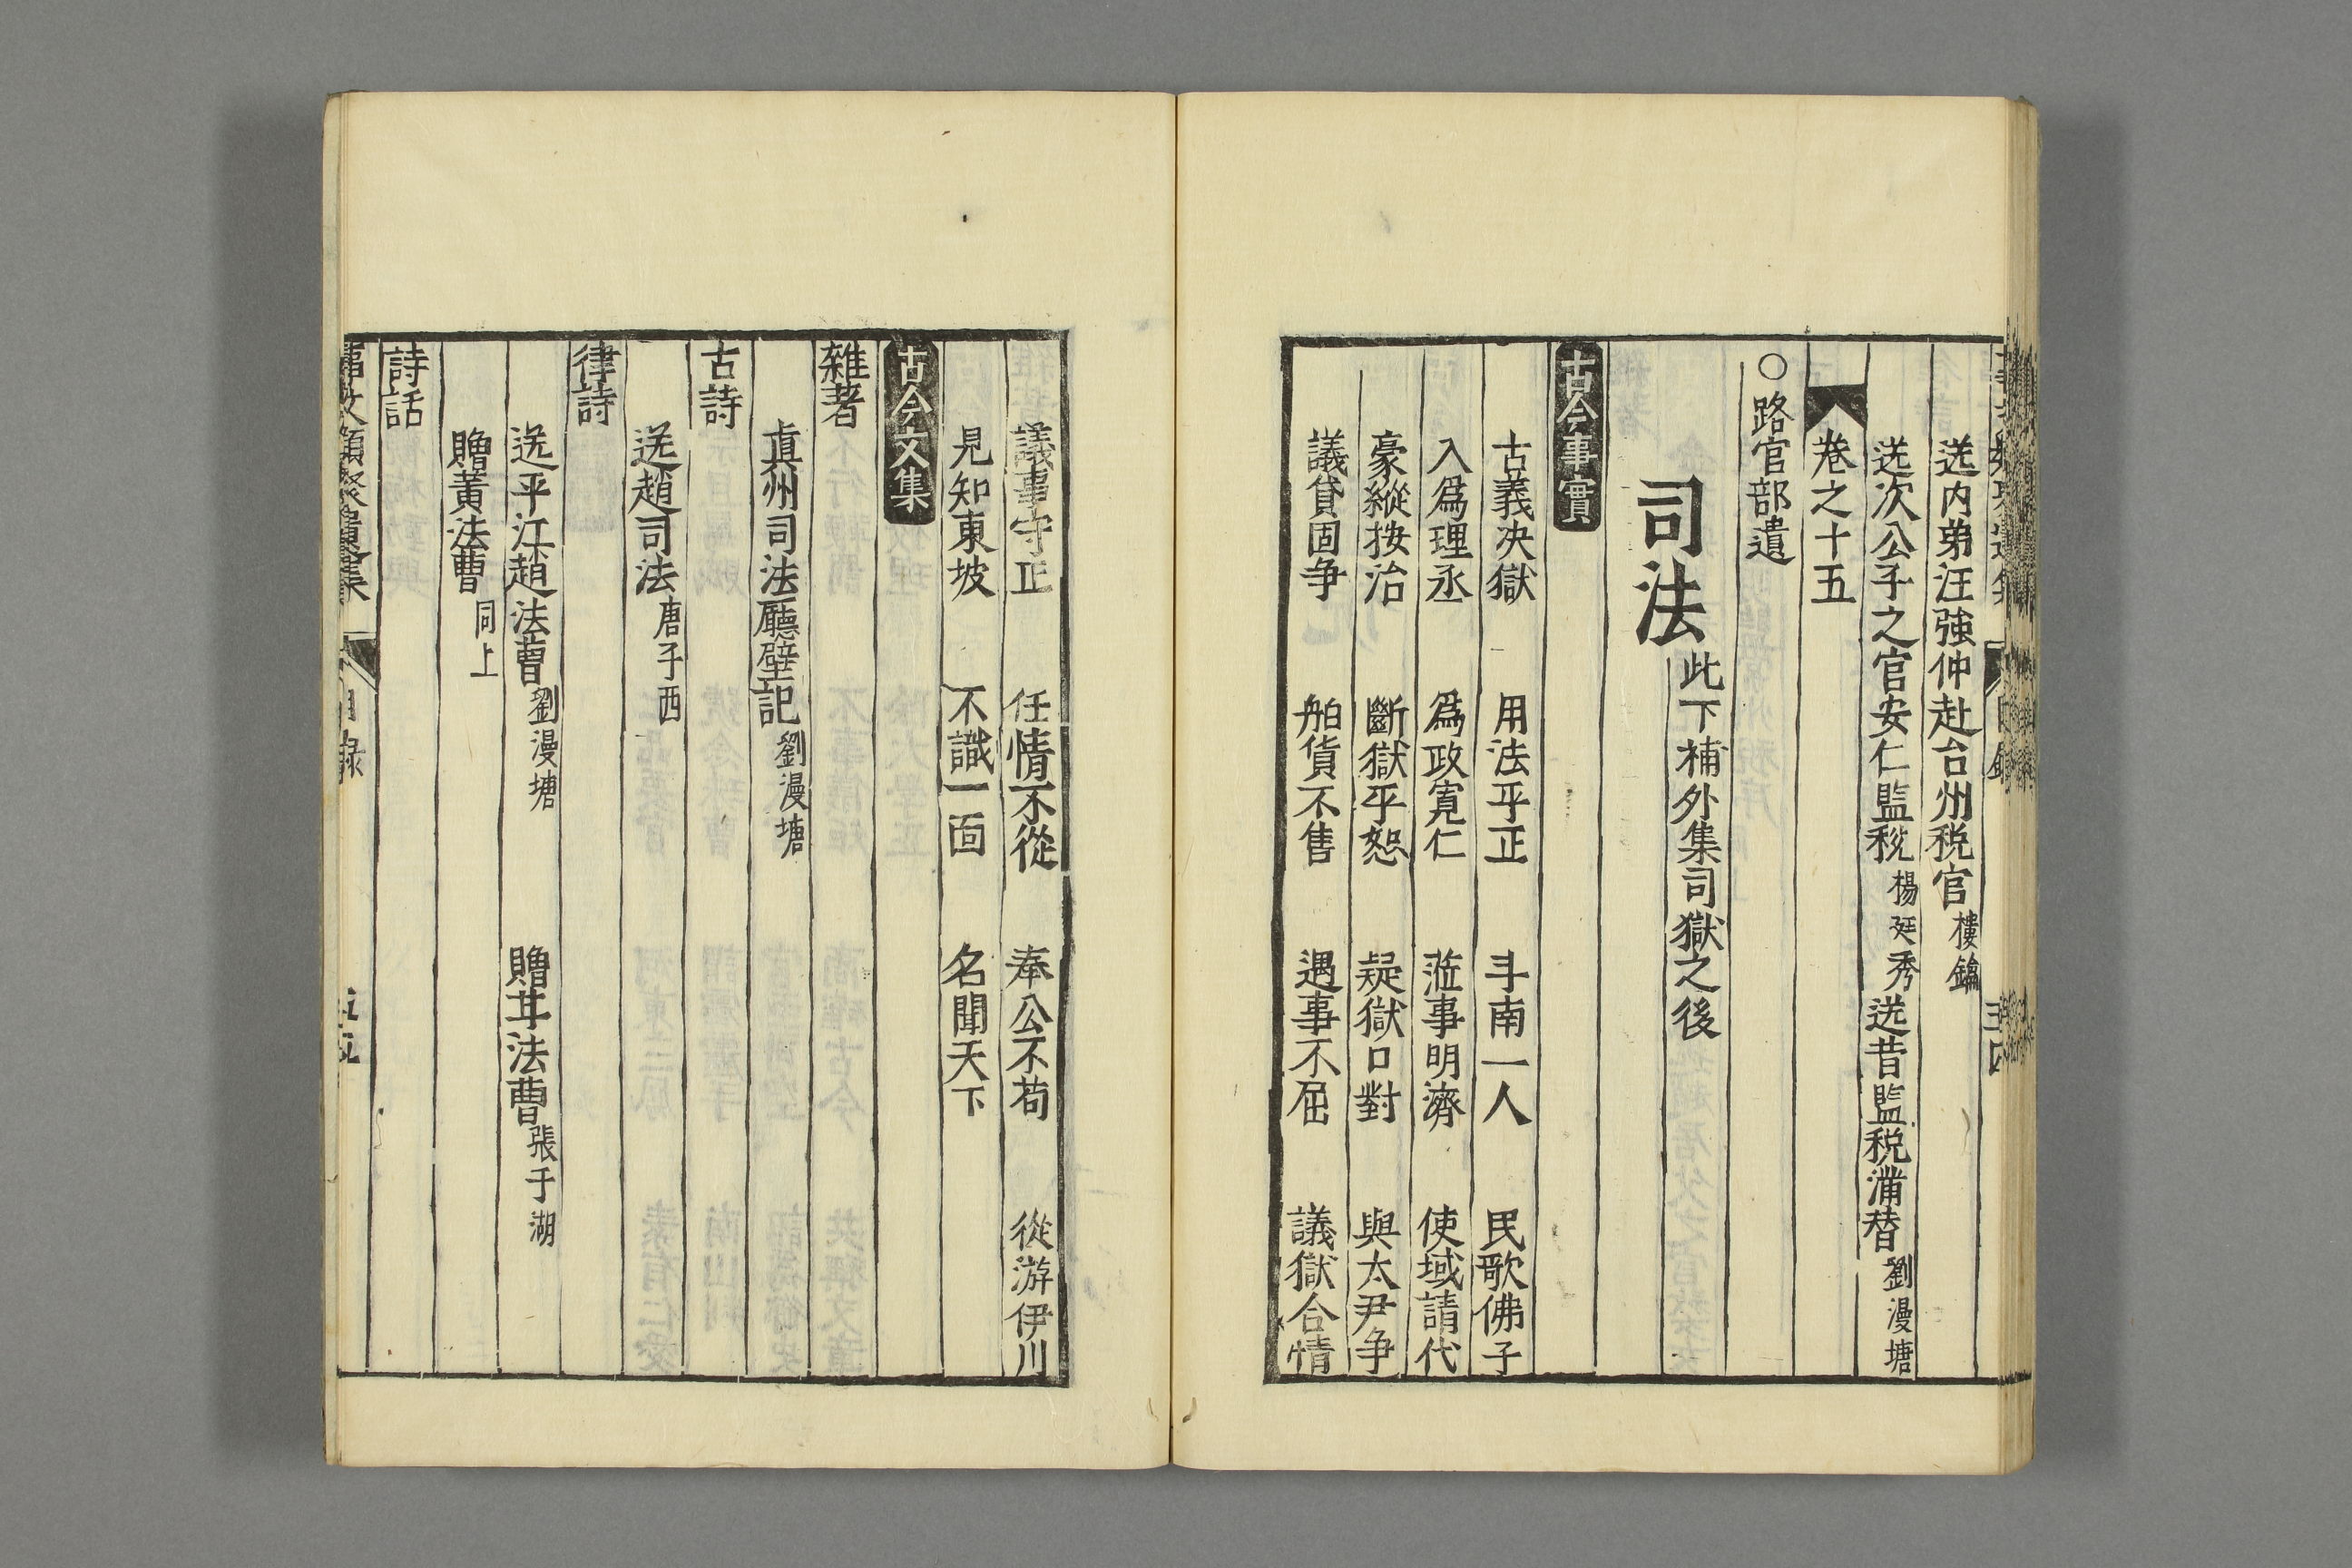 送内弟汪強仲赴台州税官 樓鑰
送次公子之官安仁監税 楊廷秀 送昔監税滿替 劉漫塘
卷之十五
○路官部遺
司法 此下補外集司獄之後
古今事實
古義决獄 用法平正 斗南一人 民歌佛子
入爲理丞 爲政寛仁 蒞事明濟 使域請代
豪縱按治 斷獄平恕 疑獄口對 與太尹争
議貸固争 舶貨不售 遇事不屈 議獄合情
議事守正 任情不從 奉公不苟 從游伊川
見知東坡 不識一面 名聞天下
古今文集
雜著
眞州司法廳壁記 劉漫塘
古詩
送趙司法 唐子西
律詩
送平江趙法曹 劉漫塘 贈芉法曹 張于湖
贈黄法曹 同上
詩話
事文類聚遺集 目録 五五